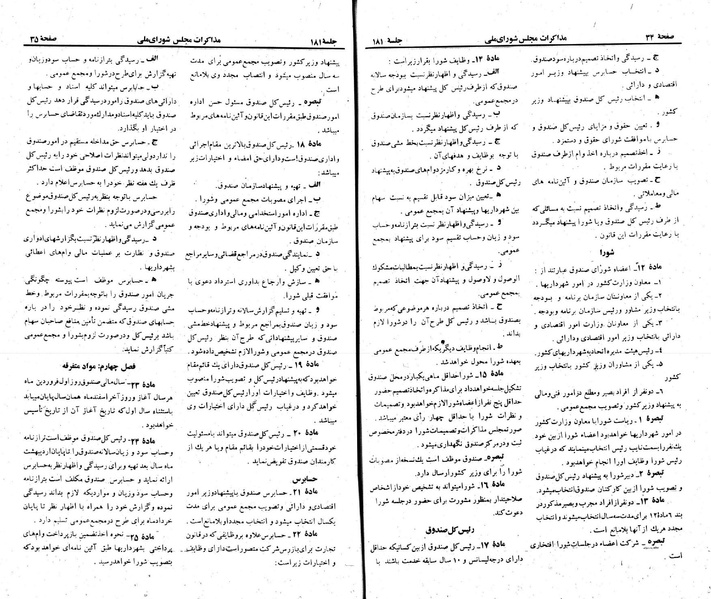 صفحهٔ ۳۴
مذاکرات مجلس شورای ملی
جلسهٔ ۱۸۱
ج ـ رسیدگی و اتخاذ تصمیم درباره سود صندوق
د ـ انتخاب حسابرس پیشنهاد وزیر امور
اقتصادی و دارائی.
ه ـ انتخاب رئیس کل صندوق پیشنهاد وزیر
کشور.
و ـ تعیین حقوق و مزایای رئیس کل صندوق و
حسابرس با موافقت شورای حقوق و دستمزد.
ز ـ اخذ تصمیم درباره اخذ وام از طرف صندوق
با رعایت مقررات مربوط.
ح ـ تصویب سازمان صندوق و آئین‌نامه های
مالی و معاملاتی.
ط ـ رسیدگی و اتخاذ تصمیم نسبت به مسائلی که
از طرف رئیس کل صندوق و یا شورا پیشنهاد میگردد
با رعایت مقررات این قانون.
شورا
مادهٔ ۱۲ـ اعضاء شورای صندوق عبارتند از:
۱ـ معاون وزارت کشور در امور شهرداریها.
۲ـ یکی از معاونان سازمان برنامه و بودجه
بانتخاب وزیر مشاور و رئیس سازمان برنامه و بودجه.
۳ـ یکی از معاونان وزارت امور اقتصادی و
دارائی بانتخاب وزیر امور اقتصادی و دارائی.
۴ـ رئیس هیئت مدیره اتحادیه شهرداریهای کشور.
۵ـ یکی از مشاوران وزیر کشور بانتخاب وزیر
کشور
۶ـ دو نفر از افراد بصیر و مطلع در امور فنی و مالی
به پیشنهاد وزیر کشور و تصویب مجمع عمومی.
تبصرهٔ ۱ـ ریاست شورا با معاون وزارت کشور
در امور شهرداریها خواهد بود و اعضاء شورا از بین خود
یک نفر را بسمت نایب رئیس انتخاب مینمایند که در غیبت
رئیس شورا وظایف او را انجام خواهد بود.
تبصرهٔ ۲ـ دبیر شورا به پیشنهاد رئیس کل صندوق
و تصویب شورا از بین کارکنان صندوق انتخاب میشود.
مادهٔ ۱۳ـ دو نفر از افراد مجرب و بصیر مذکور در
بند ۶ ماده ۱۲ برای مدت سه سال انتخاب میشوند و انتخاب
مجدد هر یک از آنها بلامانع است.
تبصره ـ شرکت اعضاء در جلسات شورا افتخاری
است.
مادهٔ ۱۴ـ وظایف شورا بقرار زیر است:
الف ـ رسیدگی و اظهار نظر نسبت به بودجه سالانه
صندوق که از طرف رئیس کل پیشنهاد میشود برای طرح
در مجمع عمومی.
ب ـ رسیدگی و اظهار نظر نسبت بسازمان صندوق
که از طرف رئیس کل پیشنهاد میگردد.
ج ـ رسیدگی و اظهار نظر نسبت بخط مشی صندوق
با توجه بوظایف و هدفهای آن.
د ـ نرخ بهره و کارمزد وام‌های صندوق به پیشنهاد
رئیس کل صندوق.
ه ـ تعیین میزان سود قابل تقسیم به نسبت سهام
بین شهرداریها و پیشنهاد آن بمجمع عمومی.
و ـ رسیدگی و اظهار نظر نسبت بترازنامه و حساب
سود و زیان و حساب تقسیم سود برای پیشنهاد بمجمع
عمومی.
ز ـ رسیدگی و اظهار نظر نسبت بمطالبات مشکوک
الوصول و لاوصول و پیشنهاد آن جهت اتخاذ تصمیم
بمجمع عمومی.
ح ـ اتخاذ تصمیم درباره هر موضوعی که مربوط
بصندوق باشد و رئیس کل طرح آن را در شورا لازم
بداند.
ط ـ انجام وظایف دیگریکه از طرف مجمع عمومی
بعهده شورا محول خواهد شد.
مادهٔ ۱۵ـ شورا حداقل ماهی یکبار در محل صندوق
تشکیل جلسه خواهد داد برای مذاکره و اتخاذ تصمیم حضور
حداقل پنج نفر از اعضاء شورا لازم خواهد بود و تصمیمات
و نظرات شورا با حداقل چهار رأی معتبر میباشد.
صورتمجلس مذاکرات و تصمیمات شورا در دفتر مخصوص
ثبت و در مرکز صندوق نگهداری میشود.
تبصره ـ صندوق موظف است یک نسخه از مصوبات
شورا را برای وزیر کشور ارسال دارد.
مادهٔ ۱۶ـ شورا میتواند به تشخیص خود از اشخاص
صلاحیتدار بمنظور مشورت برای حضور در جلسه شورا
دعوت کند.
رئیس کل صندوق
مادهٔ ۱۷ـ رئیس کل صندوق از بین کسانیکه حداقل
دارای درجه لیسانس و ۱۰ سال سابقه خدمت باشند با
جلسهٔ ۱۸۱
مذاکرات مجلس شورای ملی
صفحهٔ ۳۵
پیشنهاد وزیر کشور و تصویب مجمع عمومی برای مدت
سه سال منصوب میشود و انتصاب مجدد وی بلامانع
است.
تبصره ـ رئیس کل صندوق مسئول حسن اداره
امور صندوق طبق مقررات این قانون و آئین‌نامه‌های مربوط
میباشد.
مادهٔ ۱۸ـ رئیس کل صندوق بالاترین مقام اجرائی
و اداری صندوق است و دارای حق امضاء و اختیارات زیر
میباشد:
الف ـ تهیه و پیشنهاد سازمان صندوق.
ب ـ اجرای مصوبات مجمع عمومی و شورا.
ج ـ اداره امور استخدامی و مالی و اداری صندوق
طبق مقررات این قانون و آئین‌نامه‌های مربوط و بودجه و
سازمان صندوق.
د ـ نمایندگی صندوق در مراجع قضائی و سایر مراجع
با حق تعیین وکیل.
ه ـ سازش و ارجاع بداوری و استرداد دعوی با
موافقت قبلی شورا.
و ـ تهیه و تسلیم گزارش سالانه و ترازنامه و حساب
سود و زیان صندوق بمراجع مربوط و پیشنهاد خط مشی
صندوق و سایر پیشنهاداتی که طرح آن بنظر رئیس کل
صندوق در مجمع عمومی و شورا لازم تشخیص داده شود.
مادهٔ ۱۹ـ رئیس کل صندوق دارای یک قائم مقام
خواهد بود که به پیشنهاد رئیس کل و تصویب شورا منصوب
میشود. وظایف و اختیارات او را رئیس کل صندوق تعیین
خواهد کرد و در غیاب رئیس کل دارای اختیارات وی
میباشد.
مادهٔ ۲۰ـ رئیس کل صندوق میتواند با مسئولیت
خود قسمتی از اختیارات خود را بقائم مقام و یا هر یک از
کارمندان صندوق تفویض نماید.
حسابرس
مادهٔ ۲۱ـ حسابرس صندوق با پیشنهاد وزیر امور
اقتصادی و دارائی و تصویب مجمع عمومی برای مدت
یکسال انتخاب میشود و انتخاب مجدد او بلامانع است.
مادهٔ ۲۲ـ حسابرس علاوه بر وظایفی که در قانون
تجارت برای بازرس شرکت متصور است دارای وظایف
و اختیارات زیر است:
الف ـ رسیدگی بترازنامه و حساب سود و زیان و
تهیه گزارش برای طرح در شورا و مجمع عمومی.
ب ـ حسابرس میتواند کلیه اسناد و حسابها و
دارائی های صندوق را مورد رسیدگی قرار دهد رئیس کل
صندوق باید کلیه اسناد و مدارک مورد تقاضای حسابرس را
در اختیار او بگذارد.
ج ـ حسابرس حق مداخله مستقیم در امور صندوق
را ندارد ولی میتواند نظرات اصلاحی خود را به رئیس کل
صندوق بدهد و رئیس کل صندوق موظف است حداکثر
ظرف یک هفته نظر خود را به حسابرس اعلام دارد.
حسابرس با توجه به نظر رئیس کل صندوق موضوع
را بررسی و در صورت لزوم نظرات خود را بشورا و مجمع
عمومی گزارش مینماید.
د ـ رسیدگی و اظهار نظر نسبت بگزارشهای ادواری
صندوق و نظارت بر عملیات مالی وام‌های اعطائی
بشهرداریها.
ه ـ حسابرس موظف است پیوسته چگونگی
جریان امور صندوق را با توجه بمقررات مربوط و خط
مشی صندوق رسیدگی نموده و نظر خود را در باره
حسابهای صندوق که متضمن تأمین منافع صاحبان سهام
باشد رئیس کل و در صورت لزوم بشورا و مجمع عمومی
کتباً گزارش نماید.
فصل چهارم: مواد متفرقه
مادهٔ ۲۳ـ سال مالی صندوق روز اول فروردین ماه
هر سال آغاز و روز آخر اسفند ماه همان سال پایان مییابد
باستثناء سال اول که تاریخ آغاز آن از تاریخ تأسیس
خواهد بود.
مادهٔ ۲۴ـ رئیس کل صندوق موظف است ترازنامه و
حساب سود و زیان سالانه صندوق را تا پایان اردیبهشت
ماه سال بعد تهیه و برای رسیدگی و اظهار نظر به حسابرس
ارائه نماید و حسابرس صندوق مکلف است ترازنامه و
حساب سود و زیان و مواردیکه لازم بداند رسیدگی
نموده و گزارش خود را همراه با اظهار نظر تا پایان
خرداد ماه برای طرح در مجمع عمومی تسلیم دارد.
مادهٔ ۲۵ـ نحوه اخذ تضمین بازپرداخت وام‌های
پرداختی بشهرداریها طبق آئین‌نامه‌ای خواهد بود که
بتصویب شورا خواهد رسید.